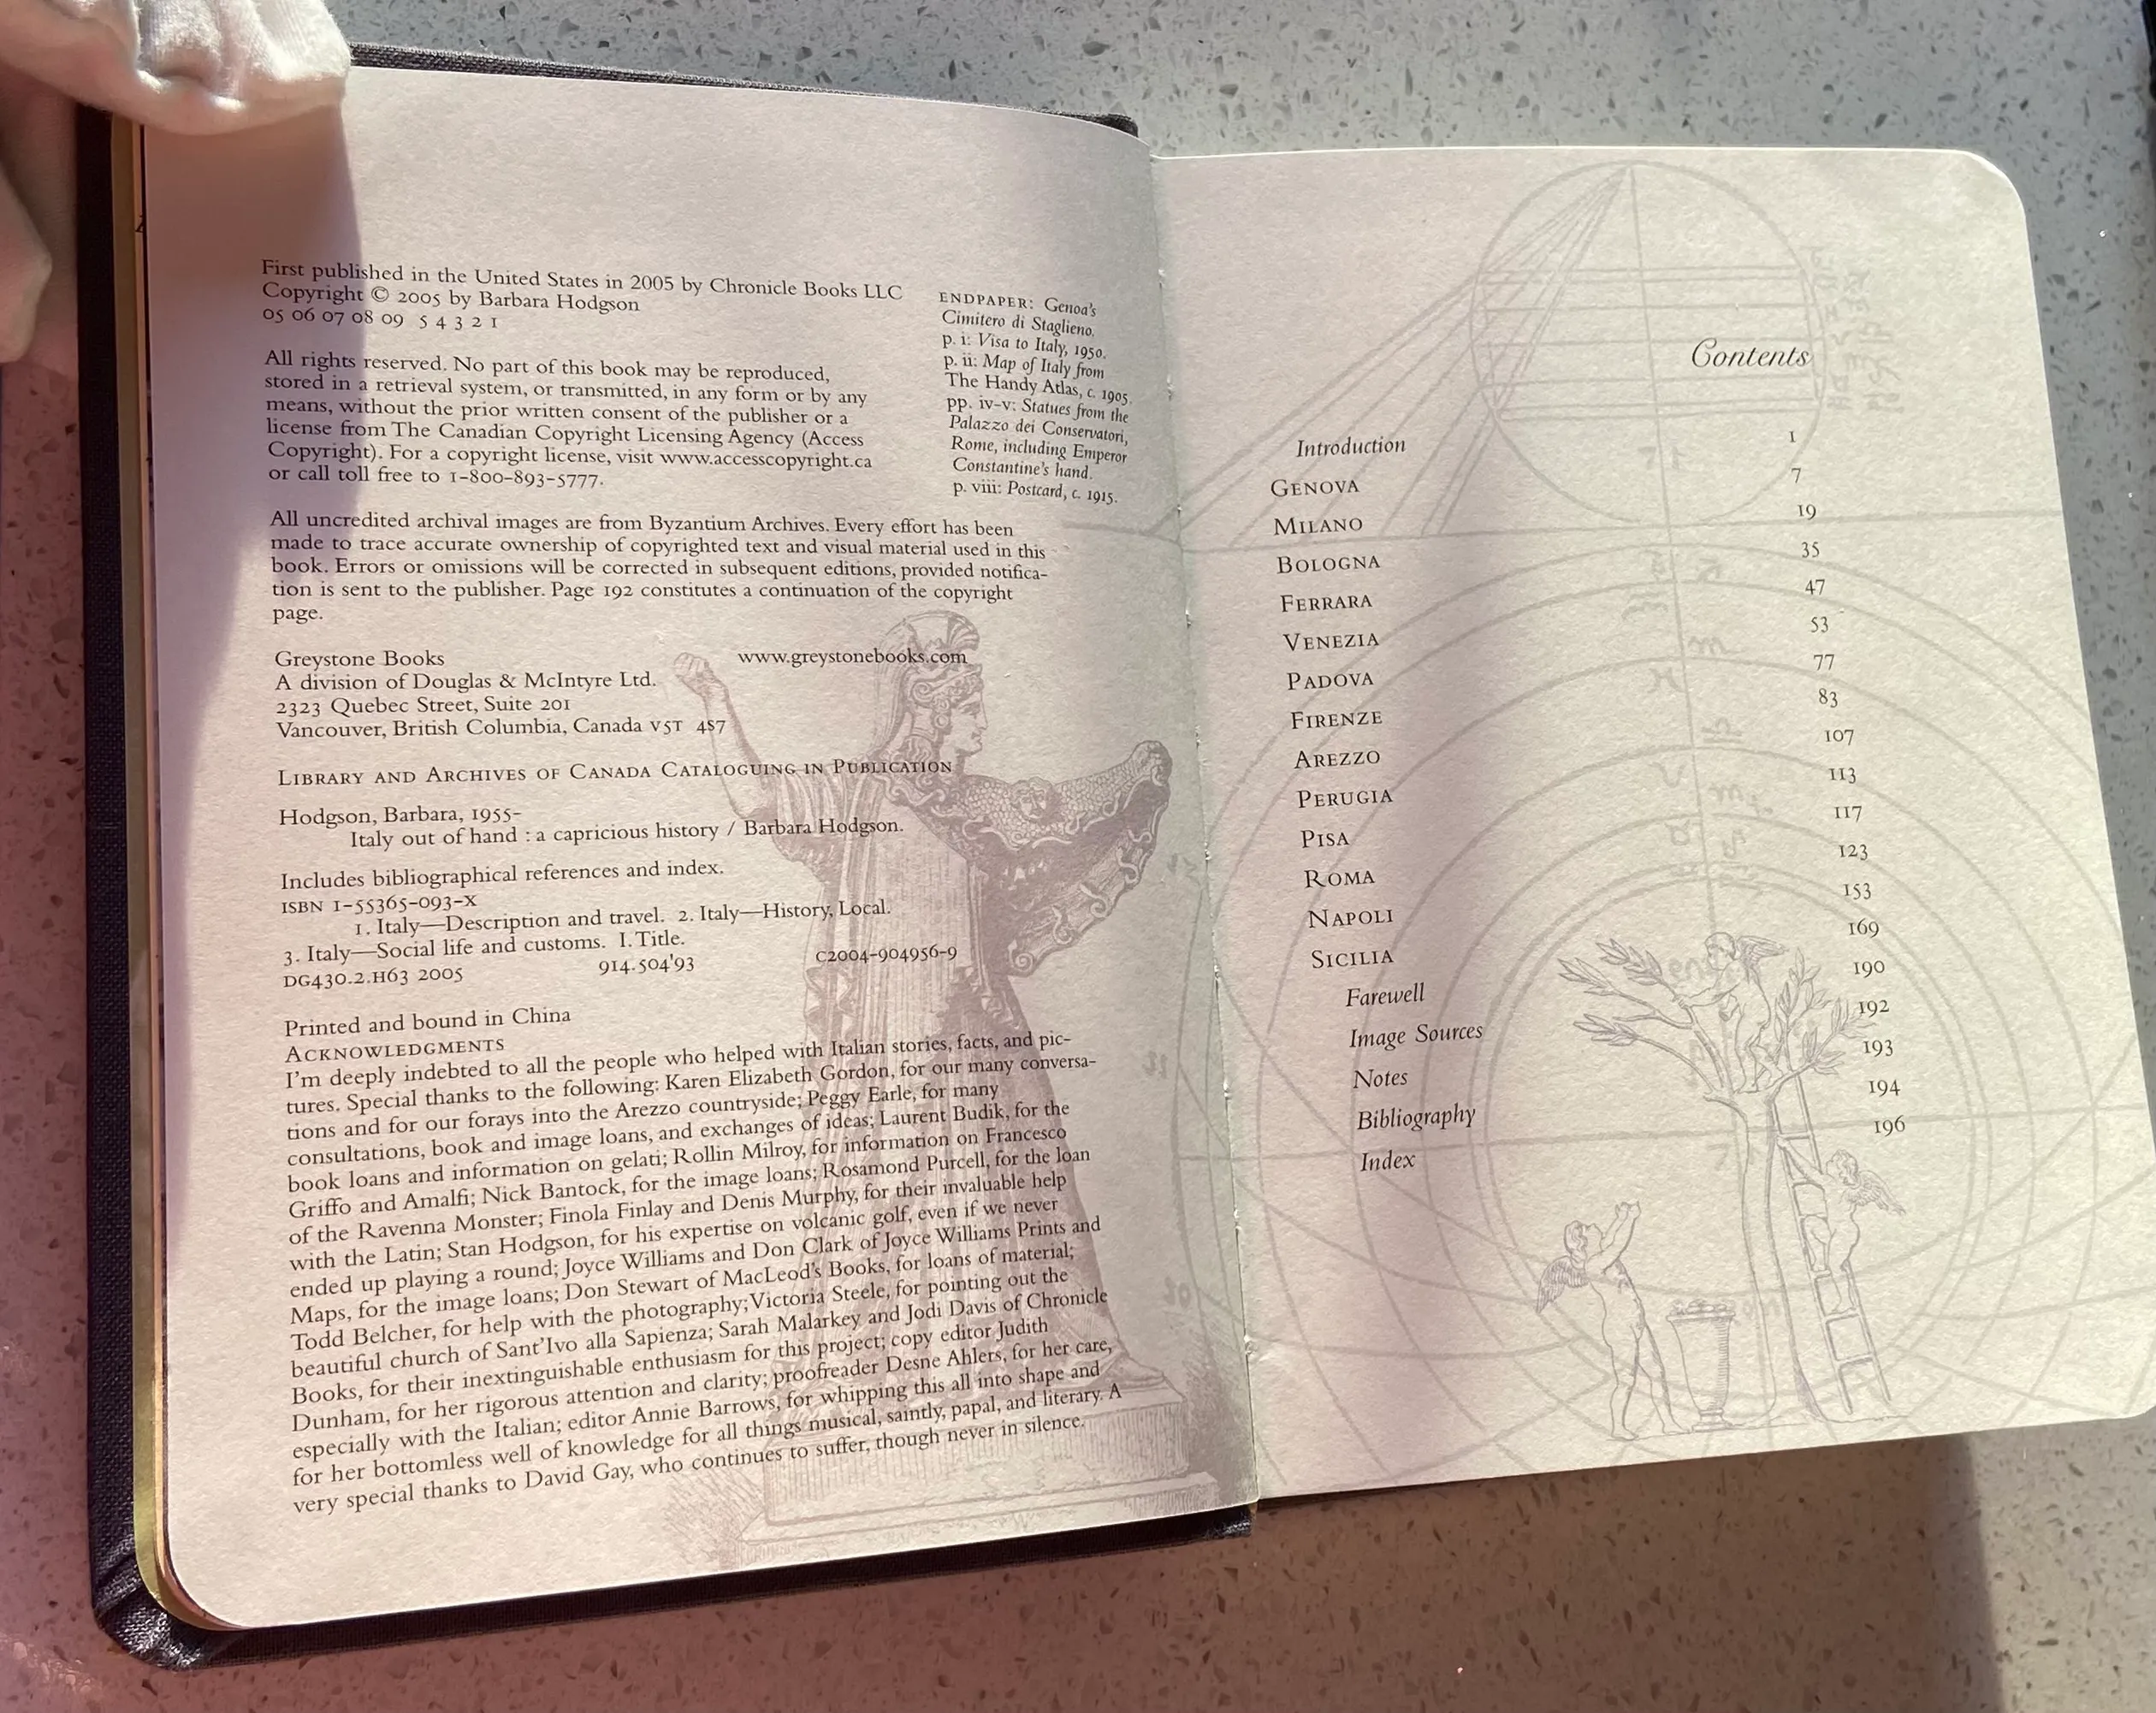 First published in the United States in 2005 by Chronicle Books LLC
Copyright © 2005 by Barbara Hodgson
05 06 07 08 09 5 4 3 2 1
All rights reserved. No part of this book may be reproduced,
stored in a retrieval system, or transmitted, in any form or by any
means, without the prior written consent of the publisher or a
license from The Canadian Copyright Licensing Agency (Access
Copyright). For a copyright license, visit www.accesscopyright.ca
or call toll free to 1-800-893-5777.
ENDPAPER: Genoa's
Cimitero di Staglieno.
p. i: Visa to Italy, 1950.
p. ii: Map of Italy from
The Handy Atlas, c. 1905.
pp. iv–v: Statues from the
Palazzo dei Conservatori,
Rome, including Emperor
Constantine's hand.
p. viii: Postcard, c. 1915.
All uncredited archival images are from Byzantium Archives. Every effort has been
made to trace accurate ownership of copyrighted text and visual material used in this
book. Errors or omissions will be corrected in subsequent editions, provided notifica-
tion is sent to the publisher. Page 192 constitutes a continuation of the copyright
page.
Greystone Books www.greystonebooks.com
A division of Douglas & McIntyre Ltd.
2323 Quebec Street, Suite 201
Vancouver, British Columbia, Canada V5T 4S7
LIBRARY AND ARCHIVES OF CANADA CATALOGUING IN PUBLICATION
Hodgson, Barbara, 1955–
Italy out of hand : a capricious history / Barbara Hodgson.
Includes bibliographical references and index.
ISBN 1-55365-093-X
1. Italy—Description and travel. 2. Italy—History, Local.
3. Italy—Social life and customs. I. Title.
DG430.2.H63 2005 914.504'93 C2004-904956-9
Printed and bound in China
ACKNOWLEDGMENTS
I'm deeply indebted to all the people who helped with Italian stories, facts, and pic-
tures. Special thanks to the following: Karen Elizabeth Gordon, for our many conversa-
tions and for our forays into the Arezzo countryside; Peggy Earle, for many
consultations, book and image loans, and exchanges of ideas; Laurent Budik, for the
book loans and information on gelati; Rollin Milroy, for information on Francesco
Griffo and Amalfi; Nick Bantock, for the image loans; Rosamond Purcell, for the loan
of the Ravenna Monster; Finola Finlay and Denis Murphy, for their invaluable help
with the Latin; Stan Hodgson, for his expertise on volcanic golf, even if we never
ended up playing a round; Joyce Williams and Don Clark of Joyce Williams Prints and
Maps, for the image loans; Don Stewart of MacLeod's Books, for loans of material;
Todd Belcher, for help with the photography; Victoria Steele, for pointing out the
beautiful church of Sant'Ivo alla Sapienza; Sarah Malarkey and Jodi Davis of Chronicle
Books, for their inextinguishable enthusiasm for this project; copy editor Judith
Dunham, for her rigorous attention and clarity; proofreader Desne Ahlers, for her care,
especially with the Italian; editor Annie Barrows, for whipping this all into shape and
for her bottomless well of knowledge for all things musical, saintly, papal, and literary. A
very special thanks to David Gay, who continues to suffer, though never in silence.
Contents
Introduction 1
GENOVA 7
MILANO 19
BOLOGNA 35
FERRARA 47
VENEZIA 53
PADOVA 77
FIRENZE 83
AREZZO 107
PERUGIA 113
PISA 117
ROMA 123
NAPOLI 153
SICILIA 169
Farewell 190
Image Sources 192
Notes 193
Bibliography 194
Index 196